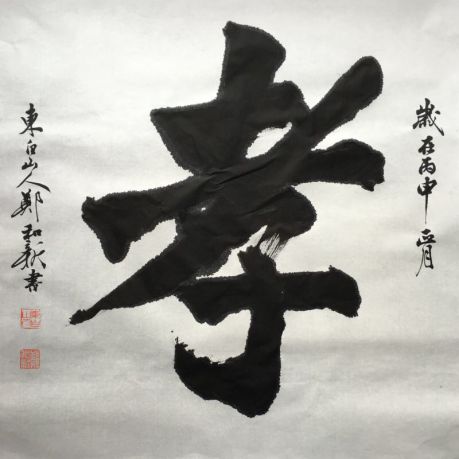 歲在丙申
孝
東白山人鄭和新書